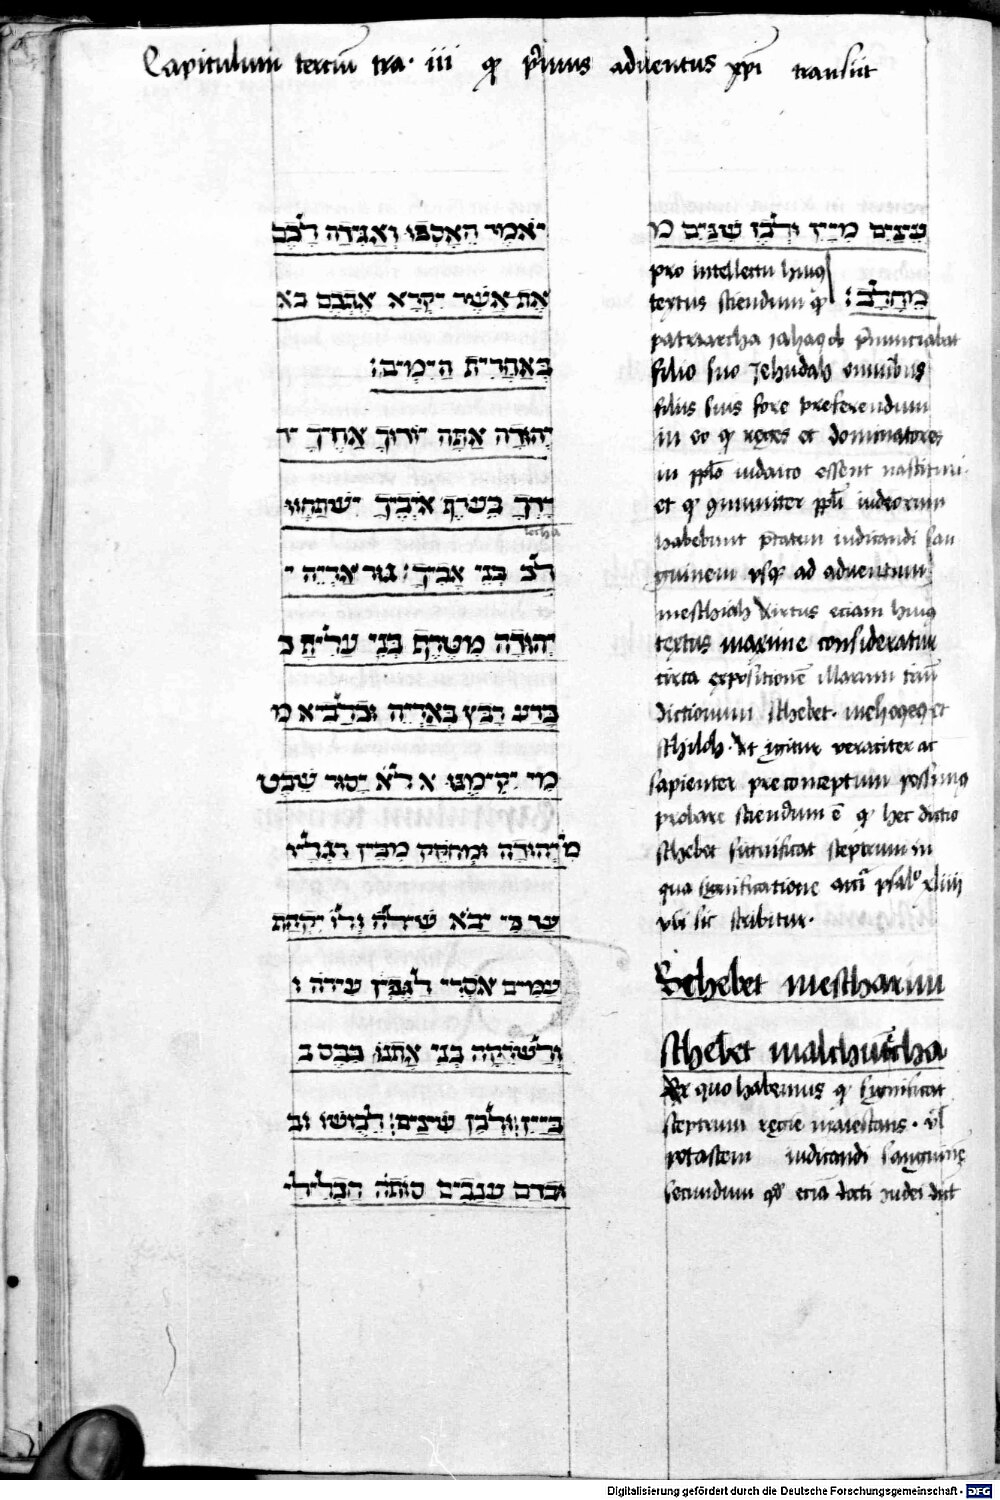 Capitulum terciū tra. iii qͥ pͥmus adventus xp̄i transiit
יֹאמֶר הֵאָסְפוּ וְאַגִידָה לָכֶם
אֵת אֲשֶר יִקְרָא אֶתְכֶם בא
בְאַחֲרִית הַיָמִים:
יְהוּדָה אַתָה יוֹדוּךָ אַחֶיךָ יד
יָדְךָ בְעֹרֶף אֹיְבֶיךָ יִשְתַחֲווּ
lecha
לך בְנֵי אָבִיךָ: גור אַרְיֵה י
יְהוּדָה מִטֶרֶף בְנִי עָלִיתָ כ
כָרַע רָבַץ כְאַרְיֵה וכְלָבִיא מ
מִי יְקִימֶנוּ א לֹא יָסוּר שֵבֶט
מִיהוּדָה וּמְחֹקֵק מִבֵין רַגְלָיו
עַד כִי יָבֹא שִילֹה וְלוֹ יִקְהַת
עַמִים אֹסְרִי לַגֶפֶן עִירֹה ו
וְלַשֹרֵקָה בְנִי אֲתֹנוֹ כִבֵס ב
בַיַיִן וּלְבֶן שִינַיִם: לְבוּשוֹ וב
וּבְדַם עֲנָבִים סוּתֹה חַכְלִילִי
עֵינַיִם מִיָיִן וּלְבֶן שִנַיִם מ
pro intellectu huius
textus sciendum qͥ מֵחָלָב:
patriarcha Jahaqob pͥnunciabat
filio suo Jehudah omnibus
filiis suis fore preferendum
in eo qͥ reges et dominatores
in pplo iudaico essent nascituri.
et qͥ communiter ppli iudeorum
habebunt ptatem iudicandi san
guinem usqͥ ad adventum
meschiah Virtus eciam huius
textus maxime consideratur
circa expositionē illarum triū
dictionum schebet. mehoqeq et
schiloh. Ut igitur veraciter ac
sapienter preconceptum possimus
probare sciendum ē qͥ hec dictio
schebet significat sceptrum in
qua significatione psal° xliiii
ubi sic scribitur.
Schebet mescharim
schebet malchutecha
Ex quo habemus qͥ significat
sceptrum regie maiestatis. vl̄
potastem iudicandi sanguinē
secundum qd̄ eciā docti iudei dict
Digitalisierung gefördert durch die Deutsche Forschungsgemeinschaft - DFG